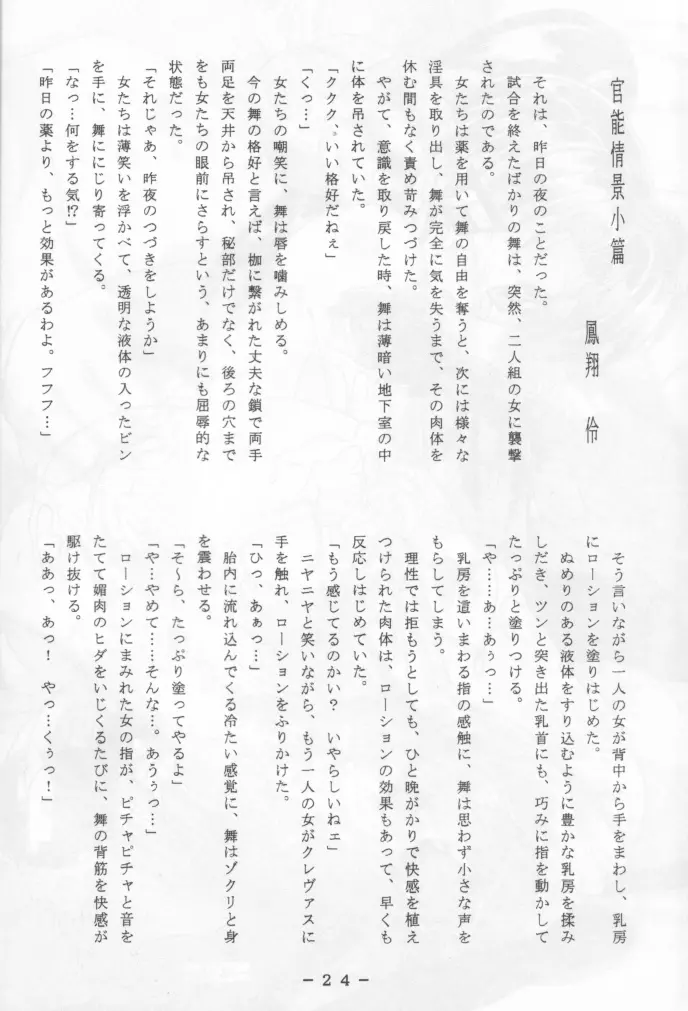 官能情景小篇
鳳翔 伶
それは、昨日の夜のことだった。
試合を終えたばかりの舞は、突然、二人組の女に襲撃
されたのである。
女たちは薬を用いて舞の自由を奪うと、次には様々な
淫具を取り出し、舞が完全に気を失うまで、その肉体を
休む間もなく責め苛みつづけた。
やがて、意識を取り戻した時、舞は薄暗い地下室の中
に体を吊されていた。
「ククク、いい格好だねぇ」
「くっ…」
女たちの嘲笑に、舞は唇を噛みしめる。
今の舞の格好と言えば、枷に繋がれた丈夫な鎖で両手
両足を天井から吊され、秘部だけでなく、後ろの穴まで
をも女たちの眼前にさらすという、あまりにも屈辱的な
状態だった。
「それじゃあ、昨夜のつづきをしようか」
女たちは薄笑いを浮かべて、透明な液体の入ったビン
を手に、舞ににじり寄ってくる。
「なっ…何をする気!?」
「昨日の薬より、もっと効果があるわよ。フフフ…」
そう言いながら一人の女が背中から手をまわし、乳房
にローションを塗りはじめた。
ぬめりのある液体をすり込むように豊かな乳房を揉み
しだき、ツンと突き出た乳首にも、巧みに指を動かして
たっぷりと塗りつける。
「や……あ…あぅっ…」
乳房を這いまわる指の感触に、舞は思わず小さな声を
もらしてしまう。
理性では拒もうとしても、ひと晩がかりで快感を植え
つけられた肉体は、ローションの効果もあって、早くも
反応しはじめていた。
「もう感じてるのかい？ いやらしいねェ」
ニヤニヤと笑いながら、もう一人の女がクレヴァスに
手を触れ、ローションをふりかけた。
「ひっ、あぁっ…」
胎内に流れ込んでくる冷たい感覚に、舞はゾクリと身
を震わせる。
「そ〜ら、たっぷり塗ってやるよ」
「や…やめて……そんな…。あうぅっ…」
ローションにまみれた女の指が、ピチャピチャと音を
たてて媚肉のヒダをいじくるたびに、舞の背筋を快感が
駆け抜ける。
「ああっ、あっ！ やっ…くぅっ！」
－２４－